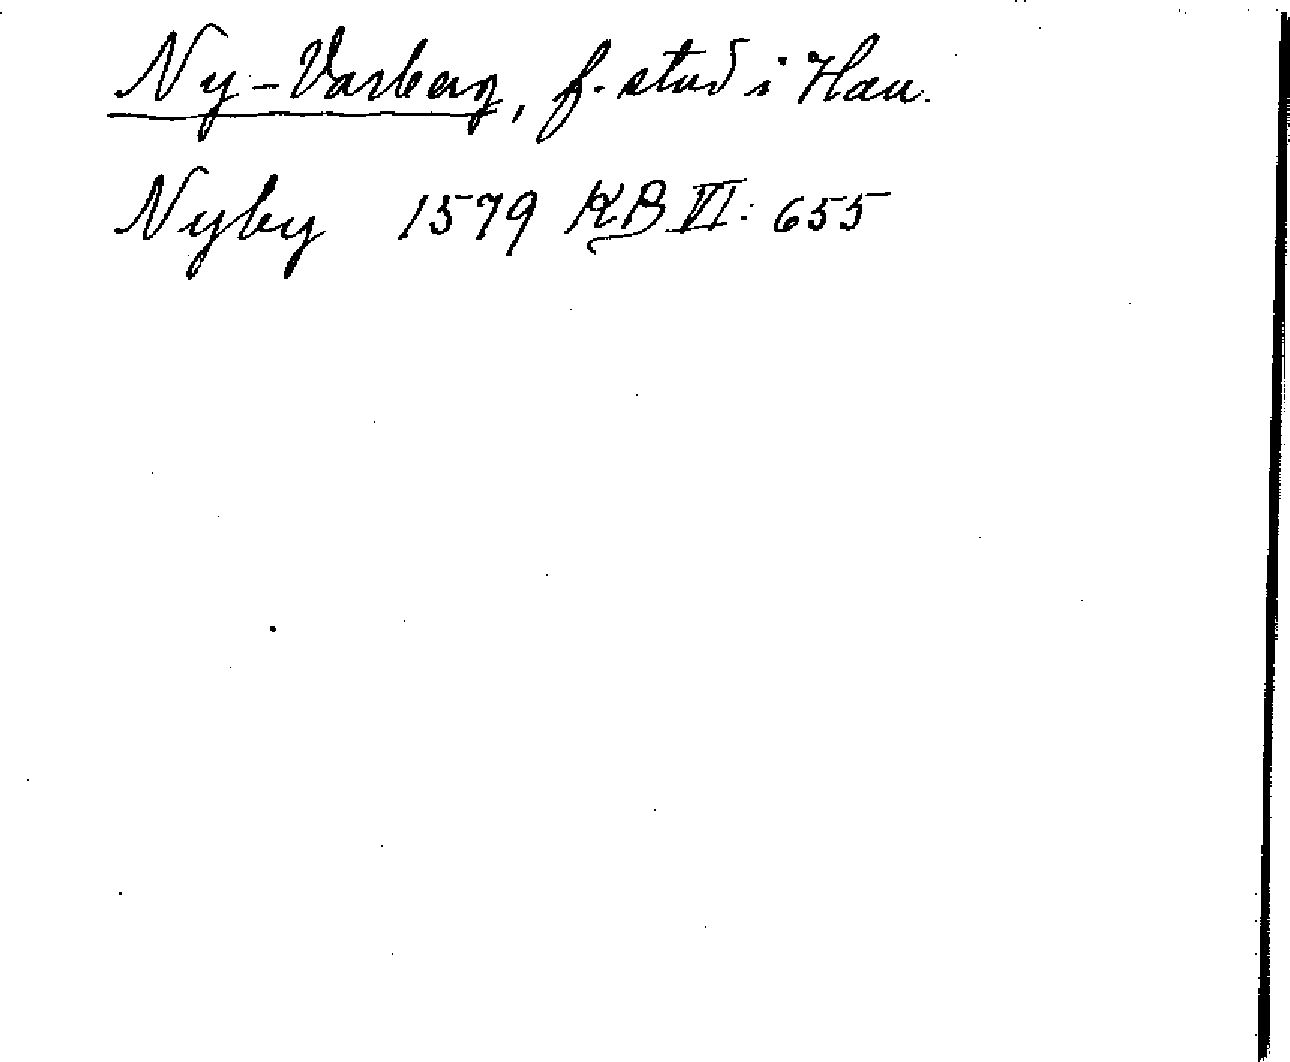 Ny-Varberg, f. stad i Hall.
Nyby 1579 KB VI: 655